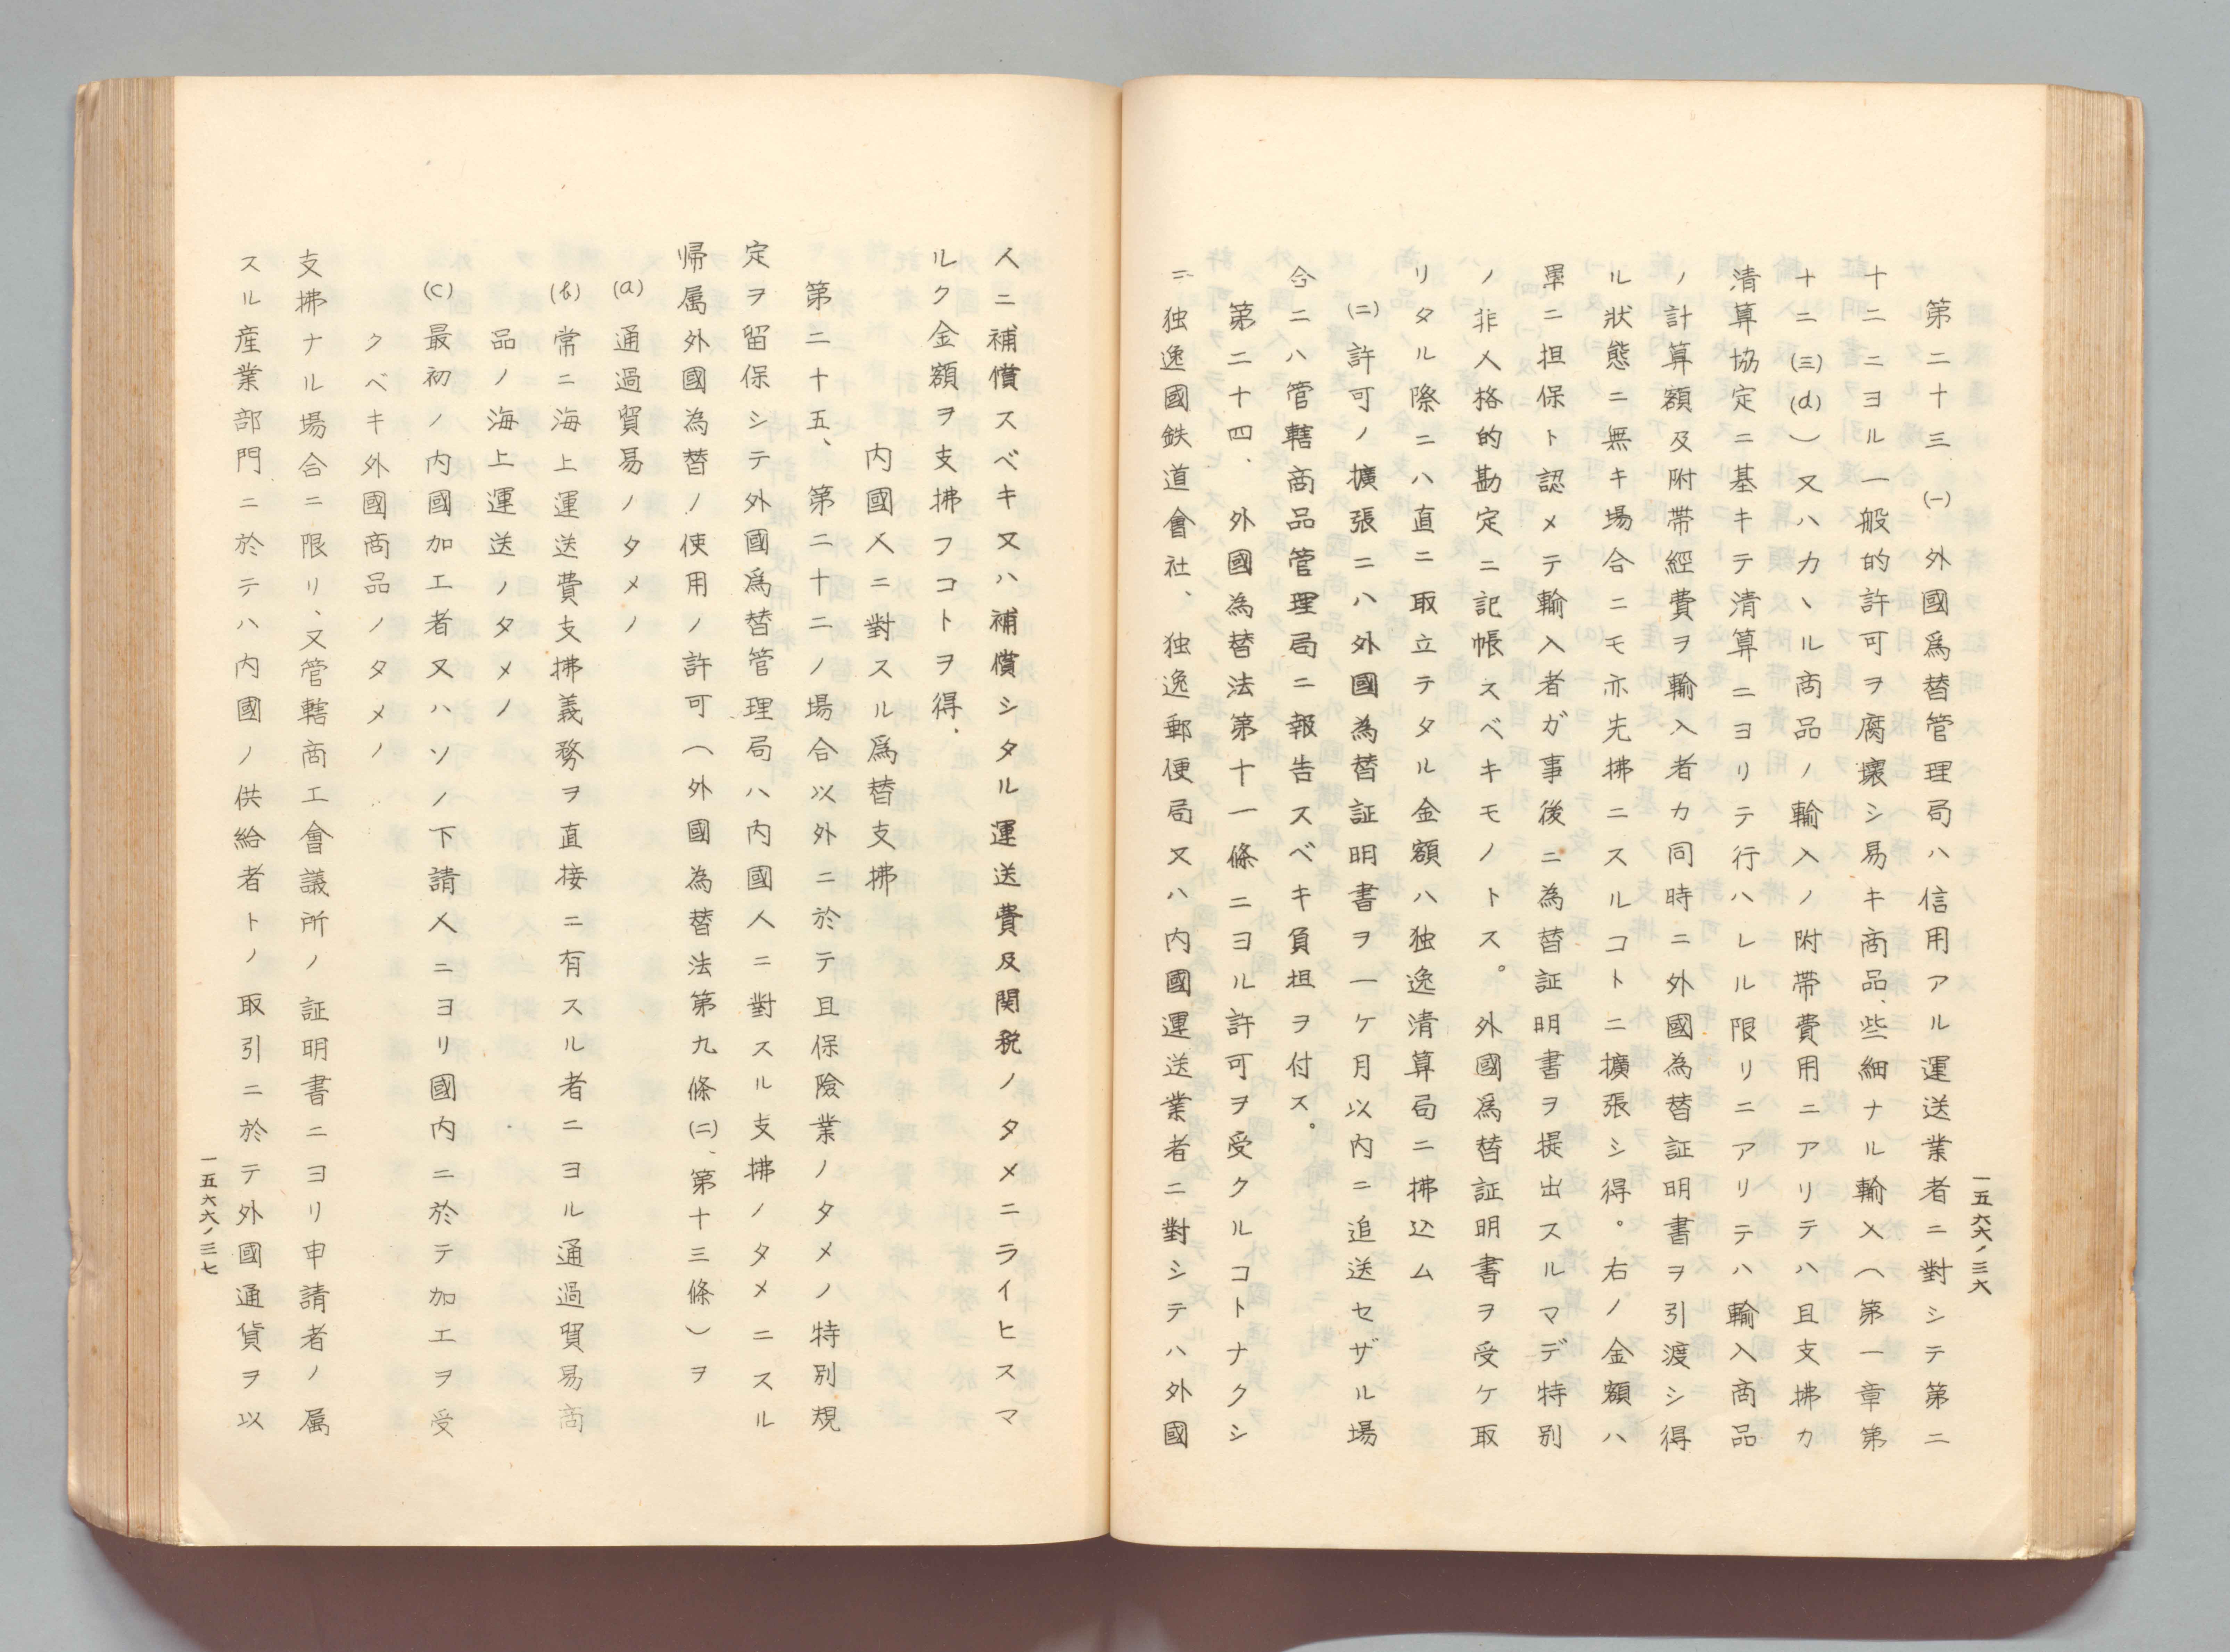 一五六六ノ三六
第二十三 ㈠ 外國爲替管理局ハ信用アル運送業者ニ對シテ第二
十二ニヨル一般的許可ヲ腐壞シ易キ商品、些細ナル輸入(第一章第
十二㈢(d))又ハカヽル商品ノ輸入ノ附帶費用ニアリテハ且支拂カ
清算協定ニ基キテ清算ニヨリテ行ハレル限リニアリテハ輸入商品
ノ計算額及附帶經費ヲ輸入者カ同時ニ外國為替証明書ヲ引渡シ得
ル狀態ニ無キ場合ニモ亦先拂ニスルコトニ擴張シ得。右ノ金額ハ
單ニ担保ト認メテ輸入者ガ事後ニ為替証明書ヲ提出スルマデ特別
ノ非人格的勘定ニ記帳スベキモノトス。外國爲替証明書ヲ受ケ取
リタル際ニハ直ニ取立テタル金額ハ独逸清算局ニ拂込ム
㈡ 許可ノ擴張ニハ外國為替証明書ヲ一ケ月以内ニ追送セザル場
合ニハ管轄商品管理局ニ報告スベキ負担ヲ付ス。
第二十四、外國為替法第十一條ニヨル許可ヲ受クルコトナクシ
テ独逸國鉄道會社、独逸郵便局又ハ内國運送業者ニ對シテハ外國
人ニ補償スベキ又ハ補償シタル運送費及関税ノタメニライヒスマ
ルク金額ヲ支拂フコトヲ得.
内國人ニ對スル爲替支拂
第二十五、第二十二ノ場合以外ニ於テ且保險業ノタメノ特別規
定ヲ留保シテ外國爲替管理局ハ内國人ニ對スル支拂ノタメニスル
帰属外國為替ノ使用ノ許可(外國為替法第九條㈡、第十三條)ヲ
(a) 通過貿易ノタメノ
(b) 常ニ海上運送費支拂義務ヲ直接ニ有スル者ニヨル通過貿易商
品ノ海上運送ノタメノ
(c) 最初ノ内國加工者又ハソノ下請人ニヨリ國内ニ於テ加工ヲ受
クベキ外國商品ノタメノ
支拂ナル場合ニ限リ、又管轄商工會議所ノ証明書ニヨリ申請者ノ属
スル産業部門ニ於テハ内國ノ供給者トノ取引ニ於テ外國通貨ヲ以
一五六六ノ三七